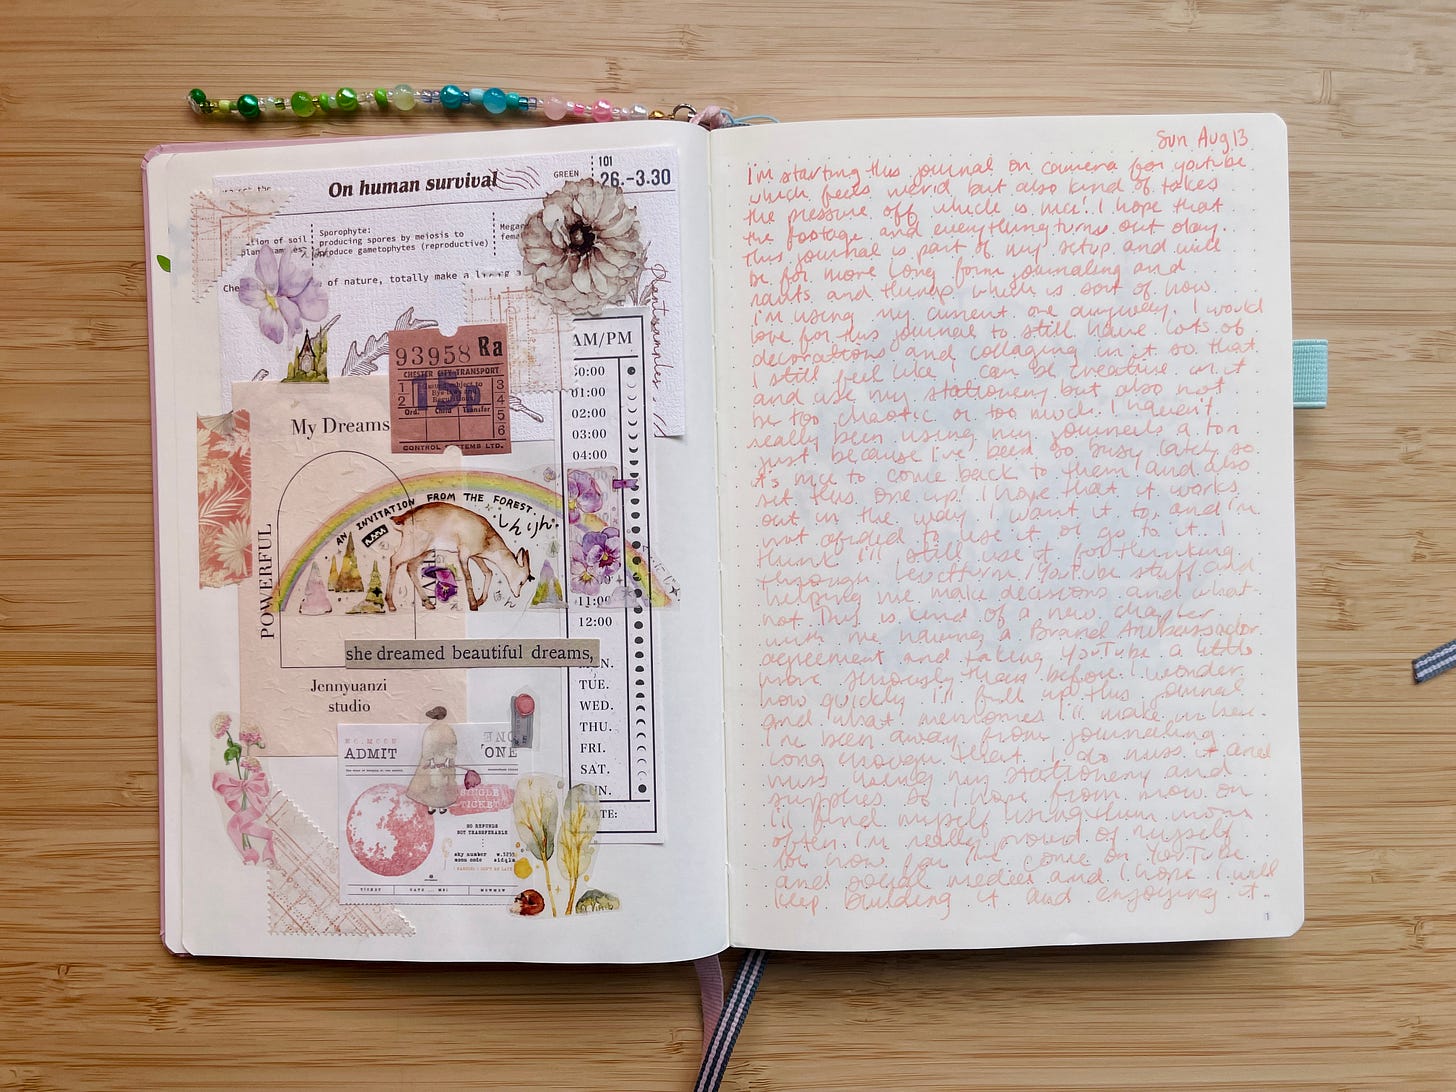 On human survival
GREEN
101
26.-3.30
Sporophyte:
producing spores by meiosis to
produce gametophytes (reproductive)
tion of soil
of nature, totally make a
Plant samples
93958 Ra
CHESTER CITY TRANSPORT
Ord. Child Transfer
1
2
3
4
5
6
My Dreams
POWERFUL
AN INVITATION FROM THE FOREST
しんりん
she dreamed beautiful dreams,
Jennyuanzi
studio
ADMIT
ONE
SINGLE
TICKET
NO REFUNDS
NOT TRANSFERABLE
sky number
moon code
TICKET
AM/PM
01:00
02:00
03:00
04:00
11:00
12:00
TUE.
WED.
THU.
FRI.
SAT.
SUN.
DATE:
Sun Aug 13
I'm starting this journal on camera for youtube
which feels weird but also kind of takes
the pressure off which is nice! I hope that
the footage and everything turns out okay.
this journal is part of my setup and will
be for more long form journaling and
rants and things which is sort of how
I'm using my current one anyway. I would
love for this journal to still have lots of
decorations and collaging in it so that
I still feel like I can be creative in it
and use my stationery but also not
be too chaotic or too much. I haven't
really been using my journals a ton
just because I've been so busy lately so
it's nice to come back to them and also
set this one up. I hope that it works
out in the way I want it to and I'm
not afraid to use it or go to it. I
think I'll still use it for thinking
through Leuchtturm/YouTube stuff and
helping me make decisions and what-
not. This is kind of a new chapter
with me having a Brand Ambassador
agreement and taking YouTube a little
more seriously than before. I wonder
how quickly I'll fill up this journal
and what memories I'll make in here.
I've been away from journaling
long enough that I do miss it and
miss using my stationery and
supplies so I hope from now on
I'll find myself using them more
often. I'm really proud of myself
for how far I've come on YouTube
and social media and I hope I will
keep building it and enjoying it.
1